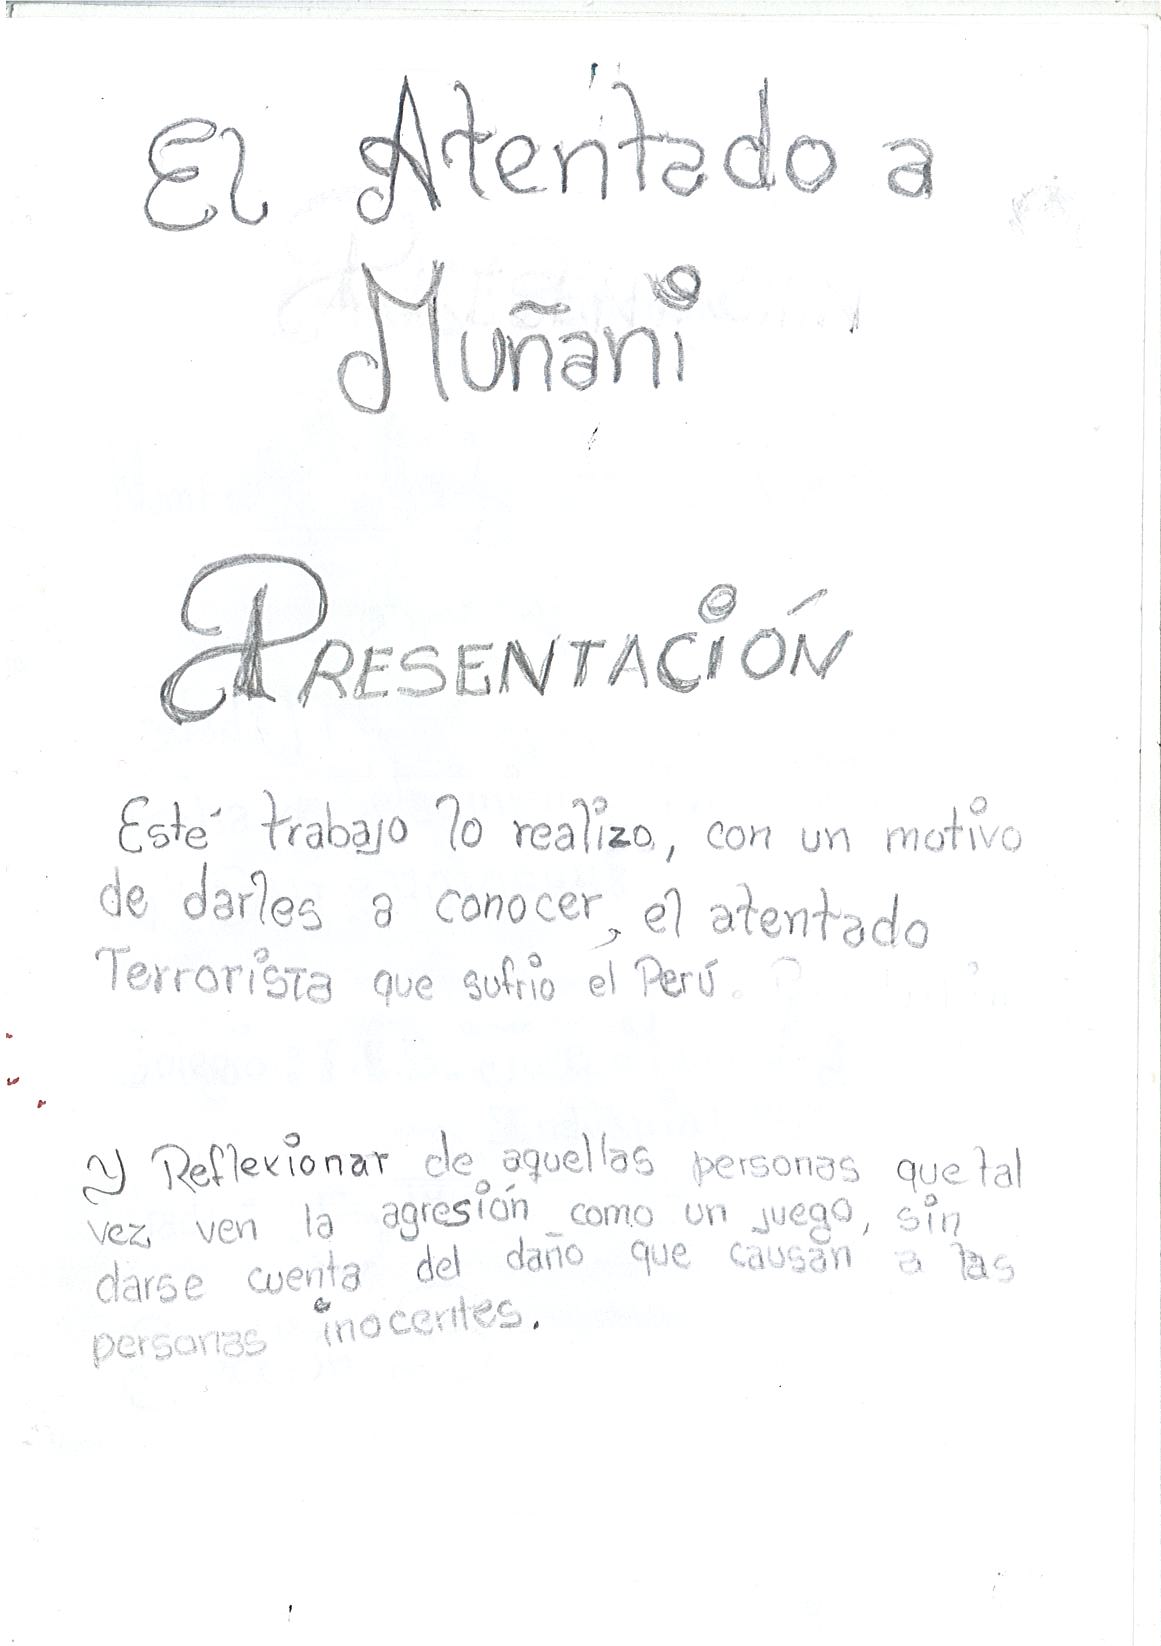 El Atentado a
Muñani
PRESENTACIÓN
Esté trabajo lo realizo, con un motivo
de darles a conocer, el atentado
Terrorista que sufrio el Perú.
Y Reflexionar de aquellas personas que tal
vez ven la agresión como un juego, sin
darse cuenta del daño que causan a las
personas inocentes.